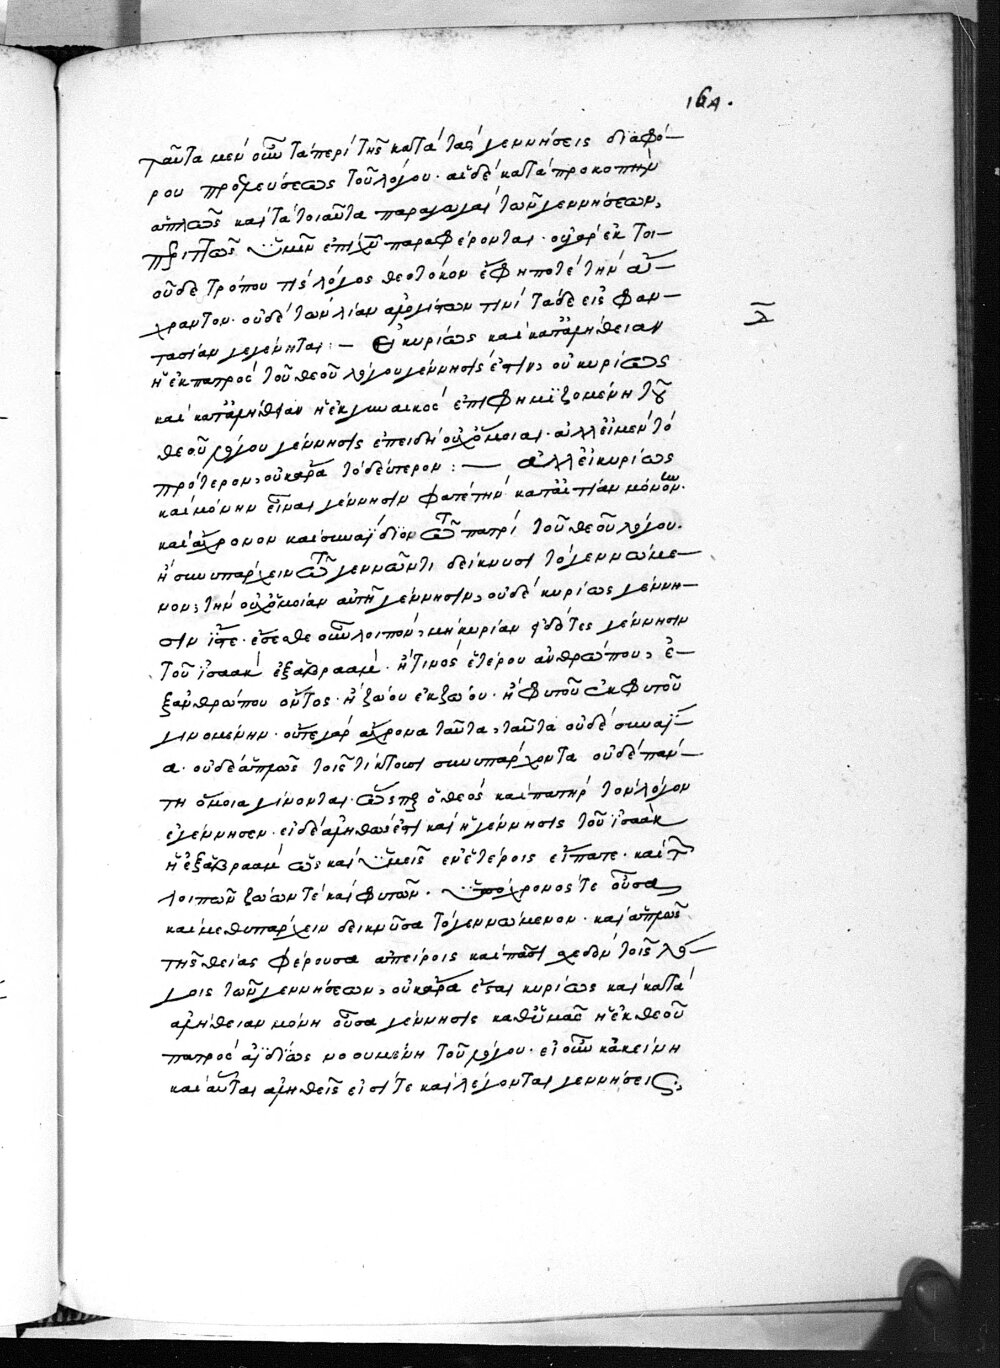 164.
ταῦτα μὲν οὖν τὰ περὶ τῆς κατὰ τὰς γεννήσεις διαφό-
ρου προόδου τοῦ λόγου· αἱ δὲ κατὰ προκοπὴν
ἁπλῶς καὶ τὰ τοιαῦτα παραγωγαὶ τῶν γεννήσεων,
ὑμῖν ἐπὶ χῦ παραφέρονται· οὐ γὰρ ἐκ τοι-
οῦδε τρόπου τίς λόγος θεοτόκον ἔφη ποτὲ τὴν ἄ-
χραντον· οὐδὲ τῶν λίαν τινὶ τάδε εἰς φαν-
τασίαν γεγένηται :— Εἰ κυρίως καὶ κατ' ἀλήθειαν
ἡ ἐκ πατρὸς τοῦ θεοῦ λόγου γέννησίς ἐστιν, οὐ κυρίως
καὶ κατ' ἀλήθειαν ἡ ἐκ γυναικὸς ἐπιφημιζομένη τοῦ
θεοῦ λόγου γέννησις ἐπειδὴ οὐχ ὅμοιαι· ἀλλ' εἰ μὲν τὸ
πρότερον, οὐκ ἄρα τὸ δεύτερον :— ἀλλ' εἰ κυρίως
καὶ μόνην εἶναι γέννησιν φατὲ τὴν κατ' αἰτίαν μόνον·
καὶ ἄχρονον καὶ συναΐδιον τῶ πατρὶ τοῦ θεοῦ λόγου·
ἢ συνυπάρχειν τῶ γεννῶντι δείκνυσι τὸ γεννώμε-
νον, τὴν οὐχ ὁμοίαν αὐτῆ γέννησιν, οὐδὲ κυρίως γέννη-
σιν ἴστε· ἔσεσθε οὖν λοιπὸν, μὴ κυρίαν εἰδότες γέννησιν
τοῦ ἰσαὰκ ἐξ ἀβραὰμ· ἤ τινος ἑτέρου ἀνθρώπου, ἐ-
ξ ἀνθρώπου ὄντος· ἢ ζώου ἐκ ζώου· ἢ φυτοῦ ἐκ φυτοῦ
γινομένην· οὔτε γὰρ ἄχρονα ταῦτα, ταῦτα οὐδὲ συναΐδι-
α· οὐδὲ ἁπλῶς τοῖς τίκτουσι συνυπάρχοντα οὐδὲ πάν-
τη ὅμοια γίνονται· ὥσπερ ὁ θεὸς καὶ πατὴρ τὸν λόγον
ἐγέννησεν· εἰ δὲ ἀληθῶς ἐστὶ καὶ ἡ γέννησις τοῦ ἰσαὰκ
ἡ ἐξ ἀβραὰμ ὡς καὶ ὑμεῖς ἐν ἑτέροις εἴπατε· καὶ τῶν
λοιπῶν ζώων τὲ καὶ φυτῶν· ὑπόχρονός τε οὖσα
καὶ μεθυπάρχειν δεικνῦσα τὸ γεννώμενον· καὶ ἁπλῶς
τῆς θείας φέρουσα ἀπείροις καὶ πᾶσι σχεδὸν τοῖς λό-
γοις τῶν γεννήσεων, οὐκ ἄρα ἔσται κυρίως καὶ κατὰ
ἀλήθειαν μόνη οὖσα γέννησις καθ' ὑμᾶς ἡ ἐκ θεοῦ
πατρὸς ἀϊδίως νοουμένη τοῦ λόγου· εἰ οὖν κἀκείνη
καὶ αὗται ἀληθεῖς εἰσί τε καὶ λέγονται γεννήσεις,